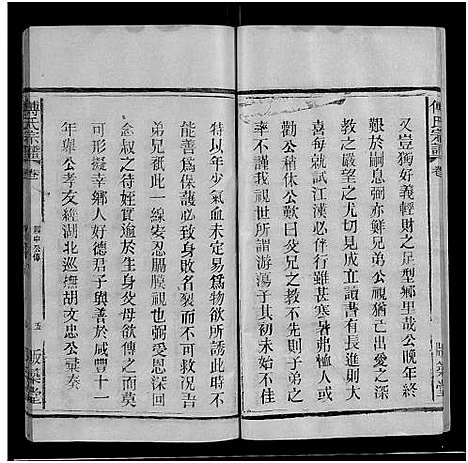 傅氏宗譜
卷
又豈獨好義輕財之足型鄉里哉公晚年終
艱於嗣息弼亦鮮兄弟公視猶己出愛之深
教之嚴望之尤切見成立讀書有長進則大
喜每就試江漢必偕行雖甚寒暑弗憚人或
勸公稍休公歎曰父兄之教不先則子弟之
率不謹我視世所謂游蕩子其初大都父兄
特以年少氣血未定易為物欲所誘此時不
能善為保護必致身敗名裂而不可救況吾
弟兄祇此一線安忍膜視也弼受恩深囘
念叔之待姪實逾於生父母欲傳之而莫
可形擬幸鄉人好德君子與善於咸豐十一
年舉公孝友經湖北巡撫胡文忠公彙奏
傅氏宗譜
卷
五
版築堂